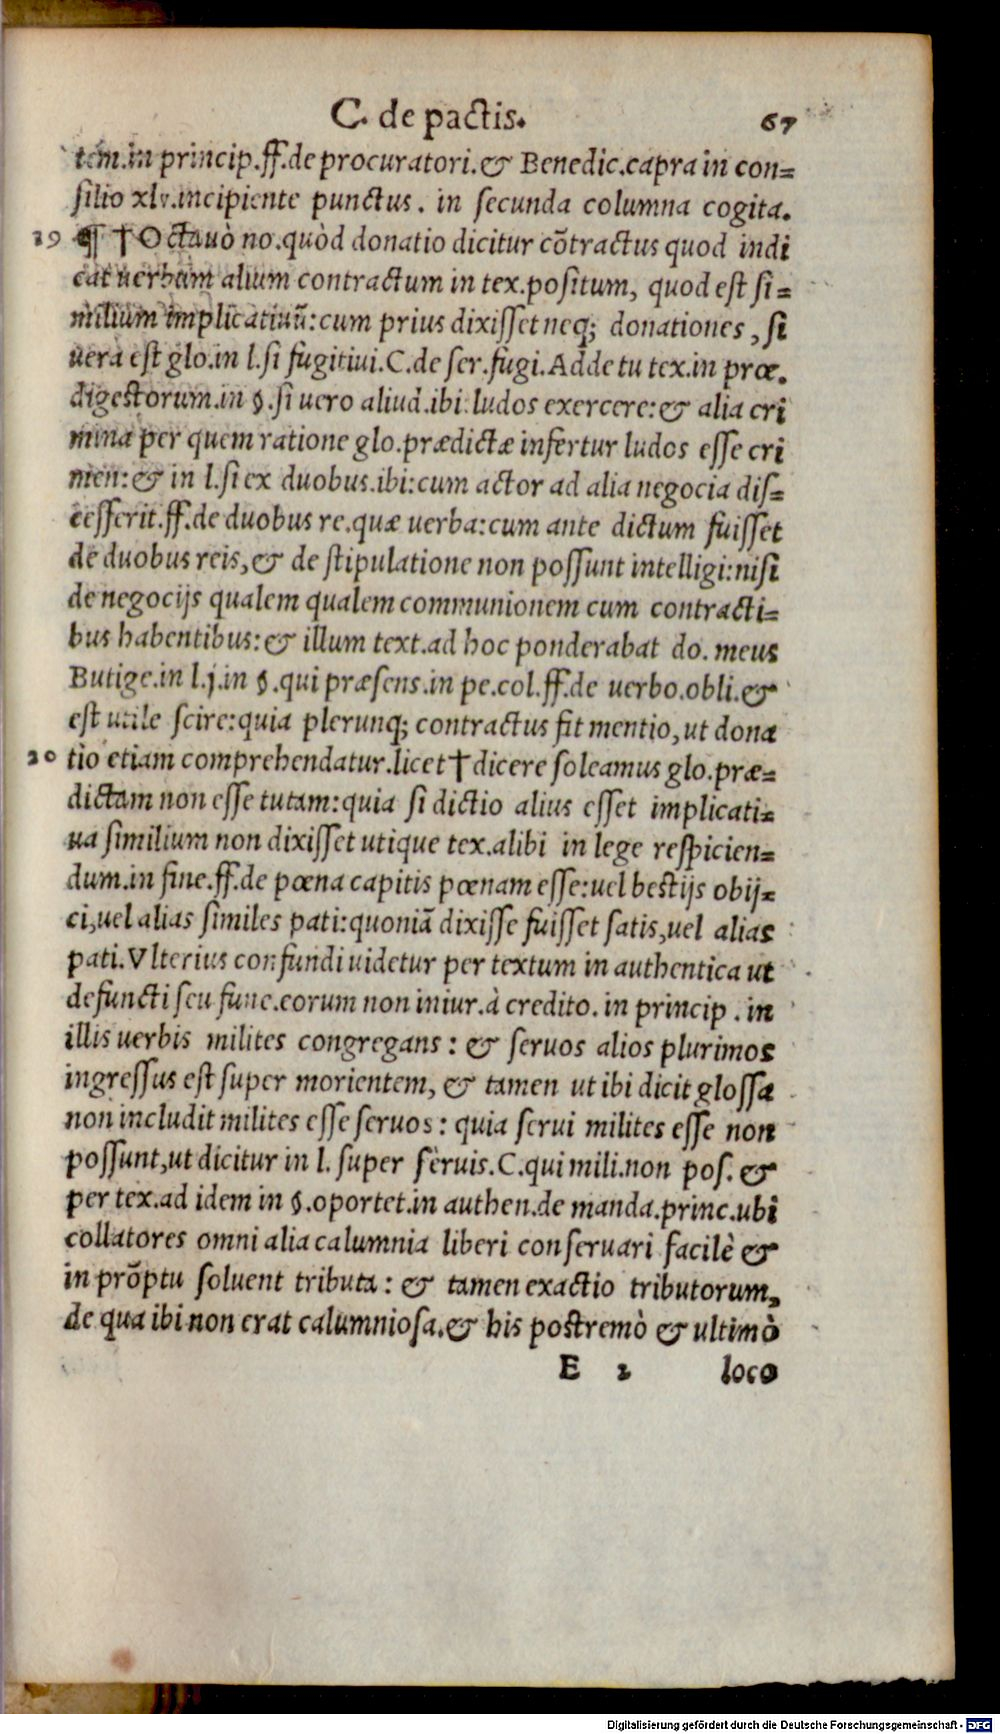 C. de pactis. 67
tem.in princip.ff.de procuratori.& Benedic.capra in con=
silio xlv.incipiente punctus. in secunda columna cogita.
19 ¶ †Octauò no.quòd donatio dicitur cõtractus quod indi
cat uerbum alium contractum in tex.positum, quod est si=
milium implicatiuũ:cum prius dixisset neq; donationes, si
uera est glo.in l.si fugitiui.C.de ser.fugi.Adde tu tex.in præ.
digestorum.in §.si uero aliud.ibi:ludos exercere:& alia cri
mina per quem ratione glo.prædictæ infertur ludos esse cri
men:& in l.si ex duobus.ibi:cum actor ad alia negocia dis=
cesserit.ff.de duobus re.quæ uerba:cum ante dictum fuisset
de duobus reis,& de stipulatione non possunt intelligi:nisi
de negocijs qualem qualem communionem cum contracti=
bus habentibus:& illum text.ad hoc ponderabat do. meus
Butige.in l.j.in §.qui præsens.in pe.col.ff.de uerbo.obli.&
est utile scire:quia plerunq; contractus fit mentio,ut dona
20 tio etiam comprehendatur.licet†dicere soleamus glo.præ=
dictam non esse tutam:quia si dictio alius esset implicati=
ua similium non dixisset utique tex.alibi in lege respicien=
dum.in fine.ff.de pœna capitis pœnam esse:uel bestijs obij=
ci,uel alias similes pati:quoniã dixisse fuisset satis,uel alias
pati.Vlterius confundi uidetur per textum in authentica ut
defuncti seu fune.eorum non iniur.à credito. in princip . in
illis uerbis milites congregans : & seruos alios plurimos
ingressus est super morientem, & tamen ut ibi dicit glossa
non includit milites esse seruos : quia serui milites esse non
possunt,ut dicitur in l. super seruis.C.qui mili.non pos. &
per tex.ad idem in §.oportet.in authen.de manda.princ.ubi
collatores omni alia calumnia liberi conseruari facilè &
in prõptu soluent tributa : & tamen exactio tributorum,
de qua ibi non erat calumniosa.& his postremò & ultimò
E 2 loco
Digitalisierung gefördert durch die Deutsche Forschungsgemeinschaft - DFG